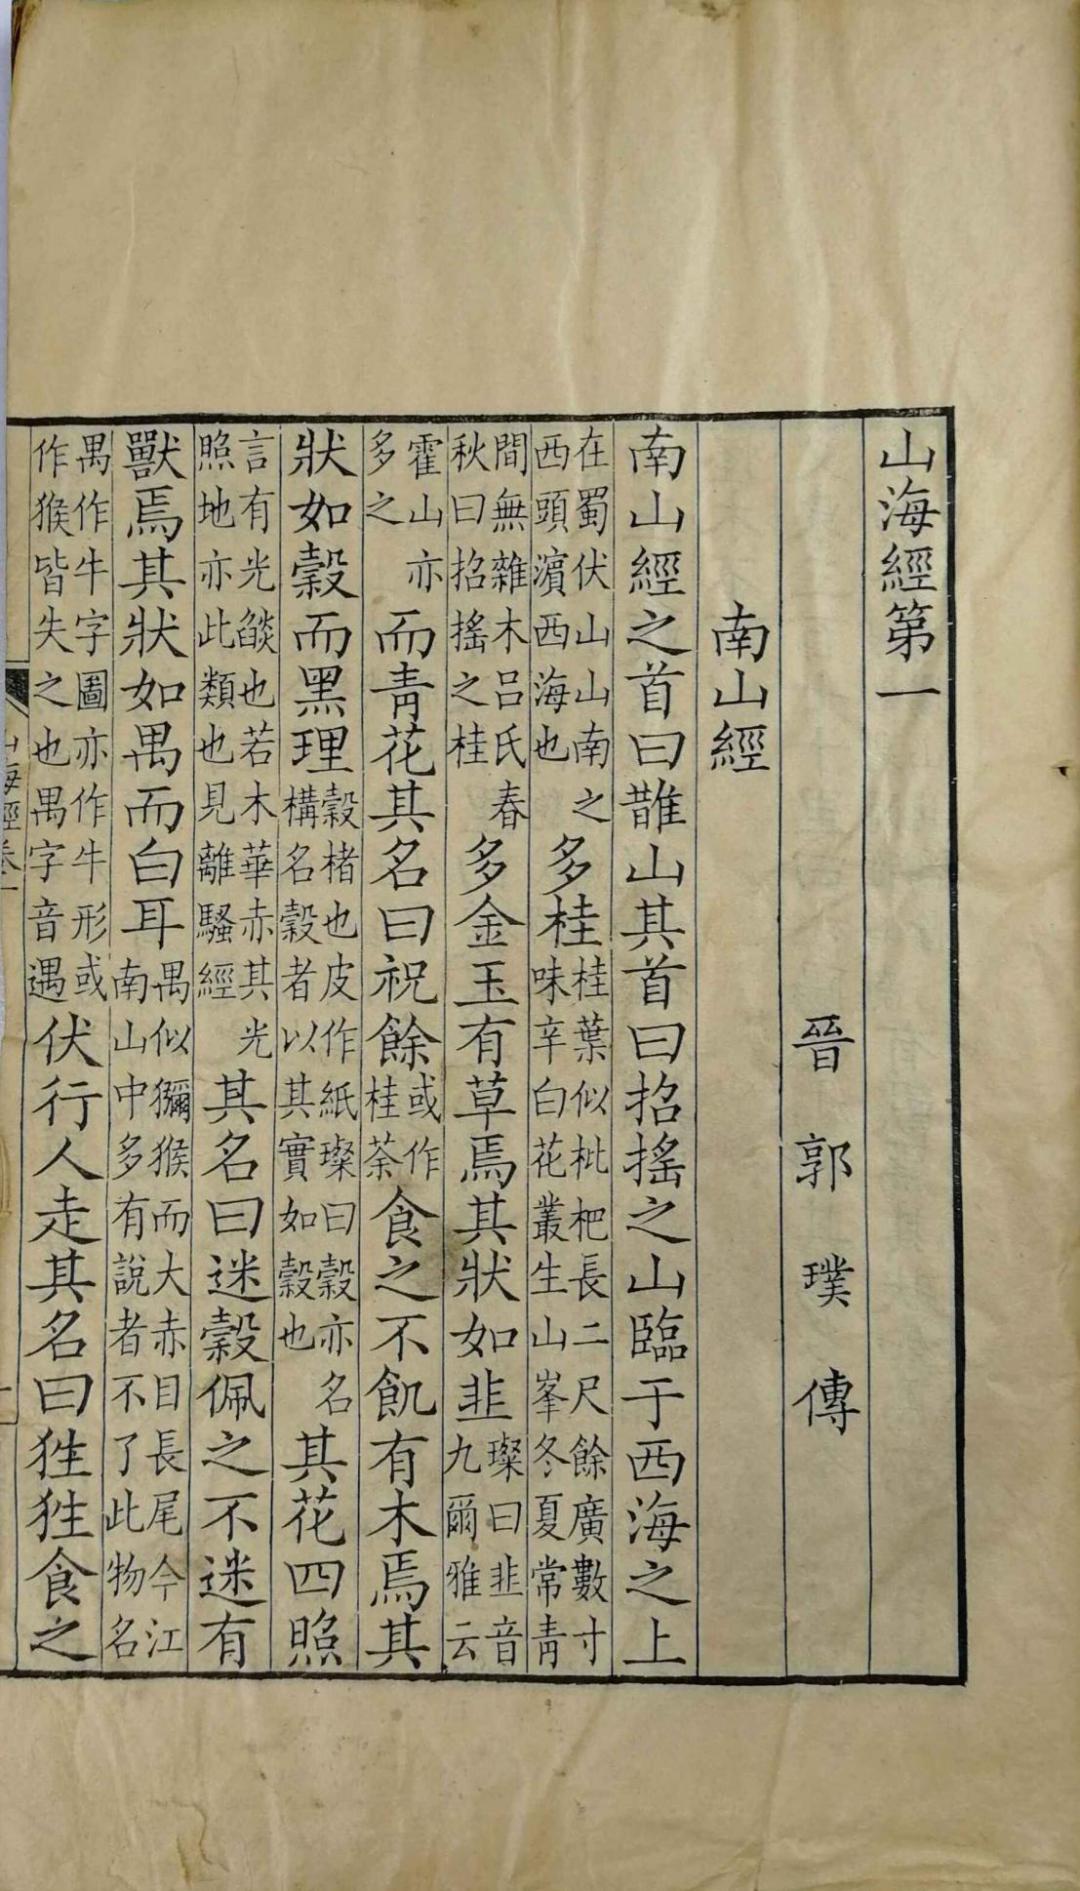 山海經第一
晉郭璞傳
南山經
南山經之首曰䧿山其首曰招搖之山臨于西海之上
在蜀伏山山南之西頭濵西海也多桂桂葉似枇杷長二尺餘廣數寸味辛白花叢生山峯冬夏常青
間無雜木呂氏春秋曰招搖之桂多金玉有草焉其狀如韭璨曰韭音九爾雅云
霍山亦多之而青花其名曰祝餘或作桂荼食之不飢有木焉其
狀如穀而黑理穀楮也皮作紙璨曰穀亦名構名穀者以其實如穀也其花四照
言有光燄也若木華赤其光照地亦此類也見離騷經其名曰迷穀佩之不迷有
獸焉其狀如禺而白耳禺似獼猴而大赤目長尾今江南山中多有說者不了此物名
禺作牛字圖亦作牛形或作猴皆失之也禺字音遇伏行人走其名曰狌狌食之
山海經卷一